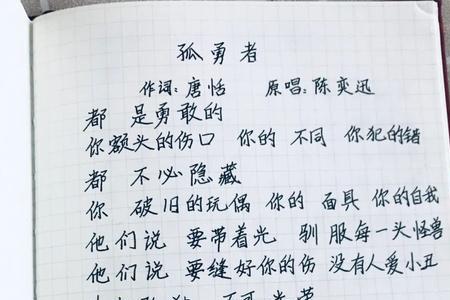 孤勇者
作词:唐恬 原唱:陈奕迅
都 是勇敢的
你额头的伤口 你的 不同 你犯的错
都 不必隐藏
你 破旧的玩偶 你的 面具 你的自我
他们说 要带着光 驯服每一头怪兽
他们说 要缝好你的伤 没有人爱小丑